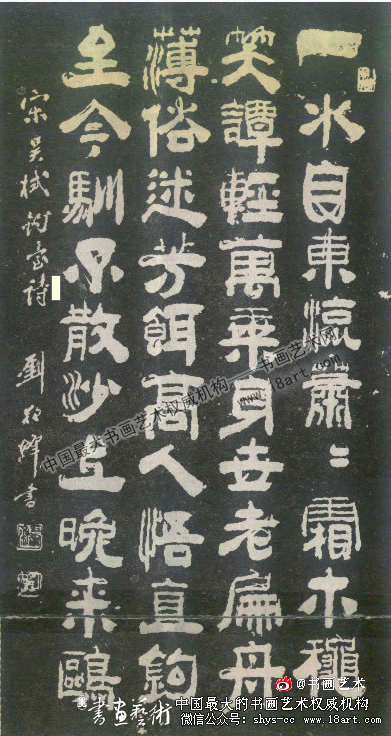 一水自東蕭〻霜木穐
笑譚輕萬乘身世老扁舟
薄俗迷芳餌高人悟直鈎
至今馴不散沙上晚來鷗
宋吳栻釣臺詩 劉書
中国最大书画艺术权威机构——书画艺术网
www.18art.com
@书画艺术
書畫藝術
中国最大的书画艺术权威机构
微信公众号: shys-cc www.18art.com